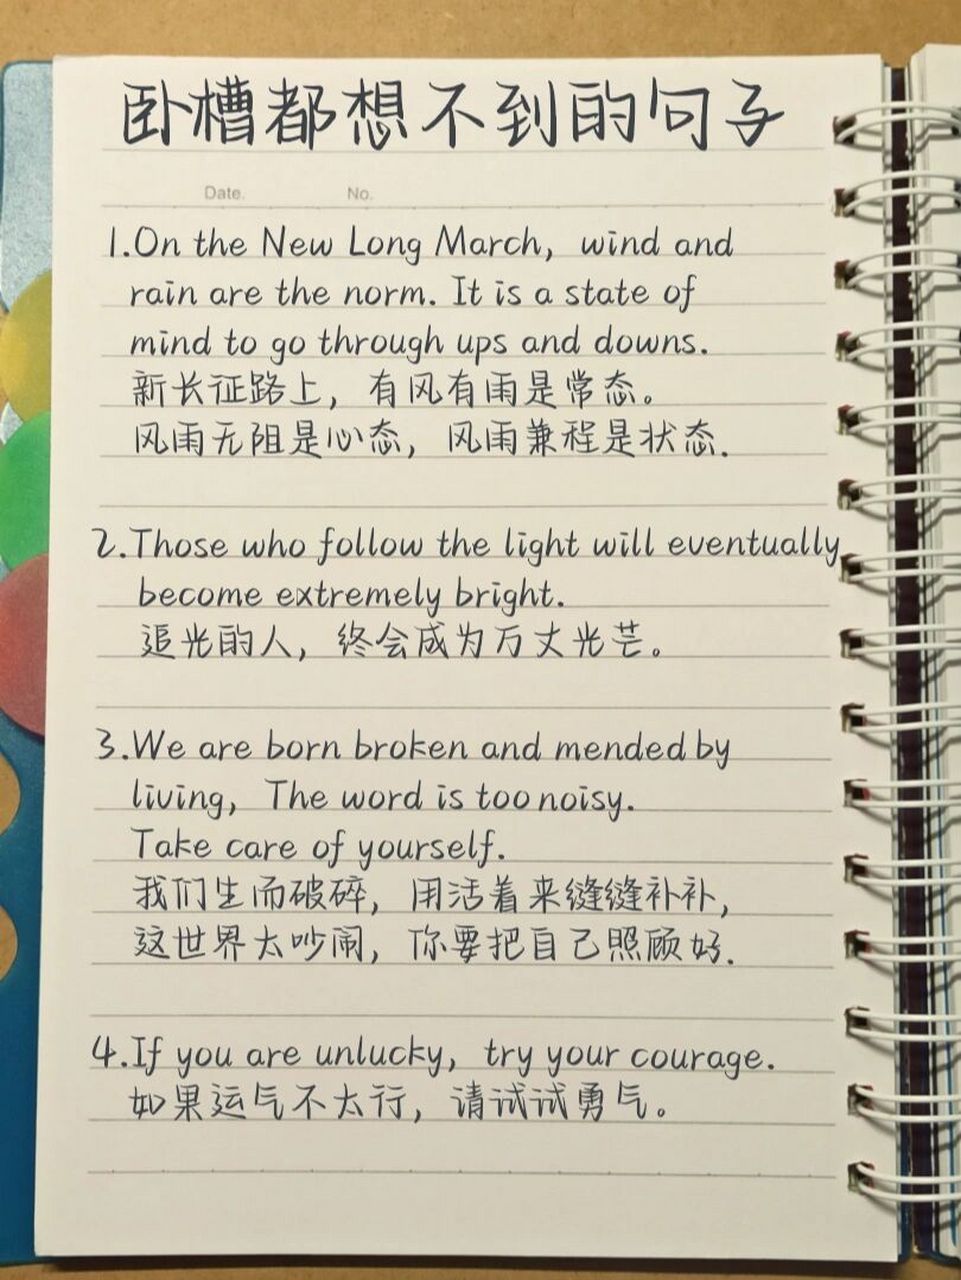 卧槽都想不到的句子
Date. No.
1.On the New Long March, wind and
rain are the norm. It is a state of
mind to go through ups and downs.
新长征路上，有风有雨是常态。
风雨无阻是心态，风雨兼程是状态.
2.Those who follow the light will eventually
become extremely bright.
追光的人，终会成为万丈光芒。
3.We are born broken and mended by
living, The word is too noisy.
Take care of yourself.
我们生而破碎，用活着来缝缝补补，
这世界太吵闹，你要把自己照顾好.
4.If you are unlucky, try your courage.
如果运气不太行，请试试勇气。